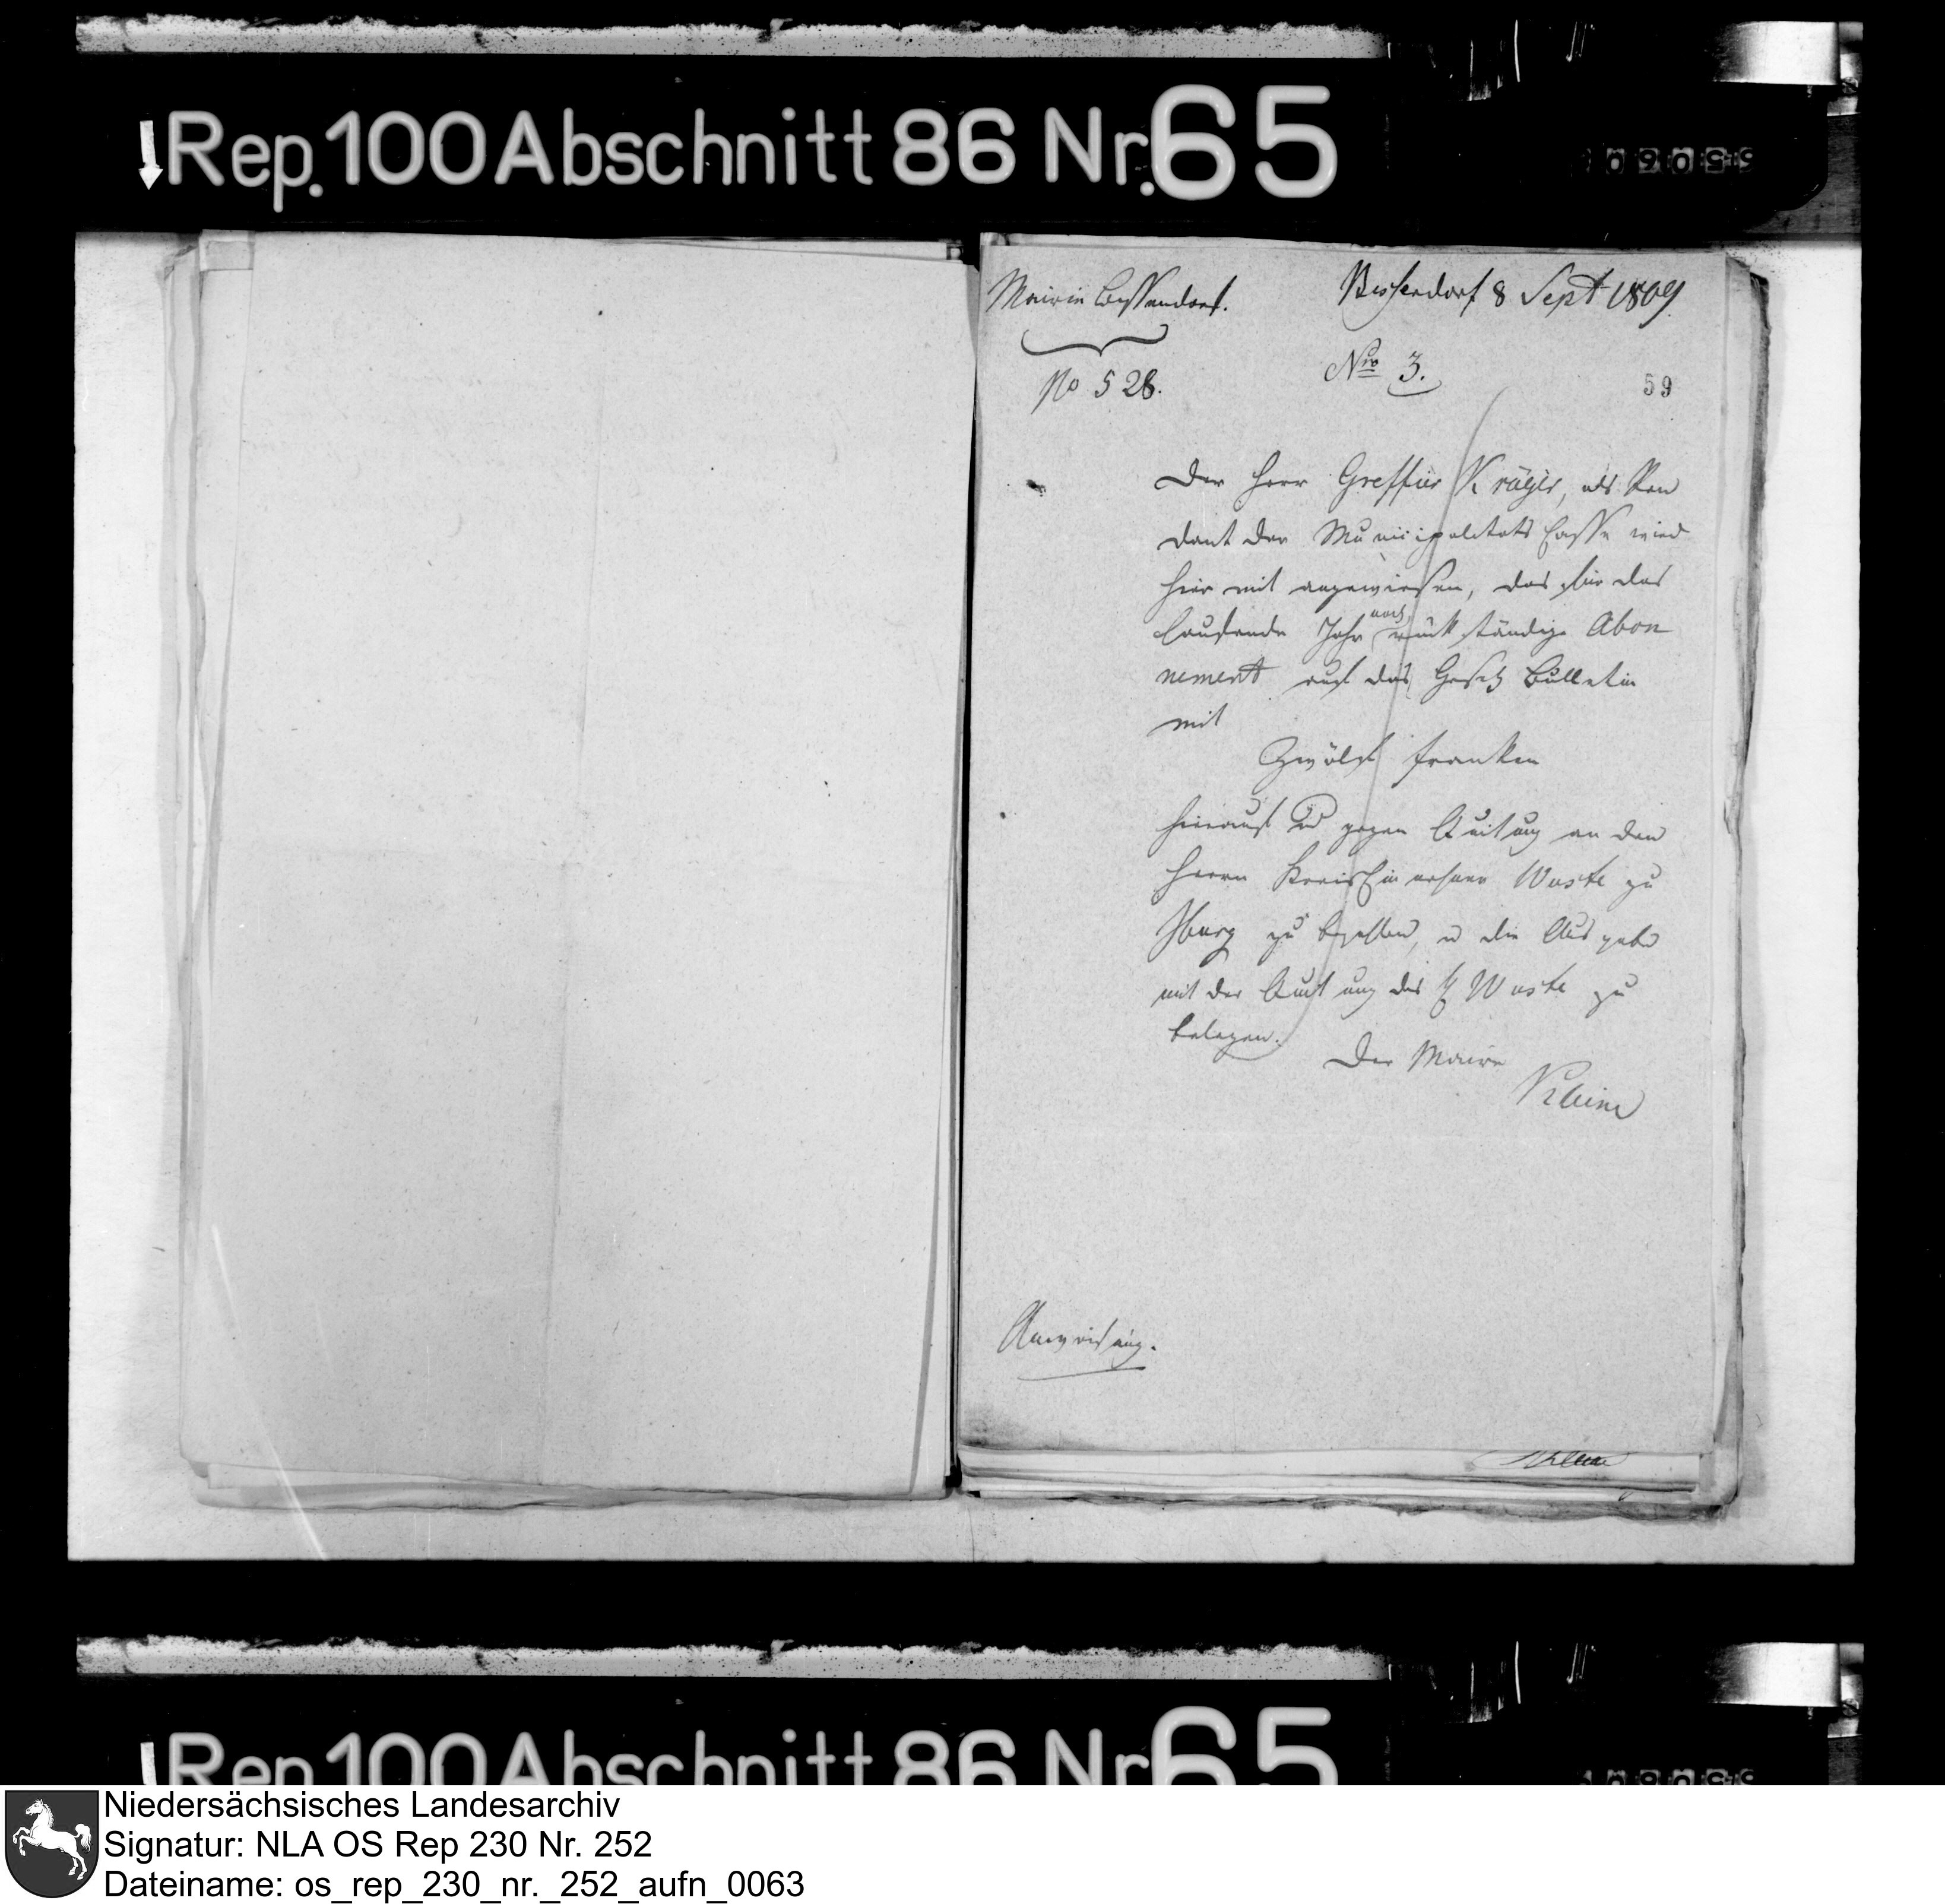 Rep. 100 Abschnitt 86 Nr. 65
Mairie Bissendorf.
Bissendorf 8 Sept 1809
No 528.
Nro 3.
59
Der Herr Greffier Krüger, als Ren
dant der Municipalitats Casse wird
hier mit angewiesen, das für das
laufende Jahr noch rückständige Abon
nement auf das Gesetz Bulletin
mit
Zwölf Franken
hierauf gegen Quitung an den
Herrn Kreis Einnehmer Wuste zu
Iburg zu bezahlen, u die Ausgabe
mit der Quitung des H Wuste zu
belegen.
Der Maire
Kleine
Anweisung.
Rep. 100 Abschnitt 86 Nr. 65
Niedersächsisches Landesarchiv
Signatur: NLA OS Rep 230 Nr. 252
Dateiname: os_rep_230_nr._252_aufn_0063